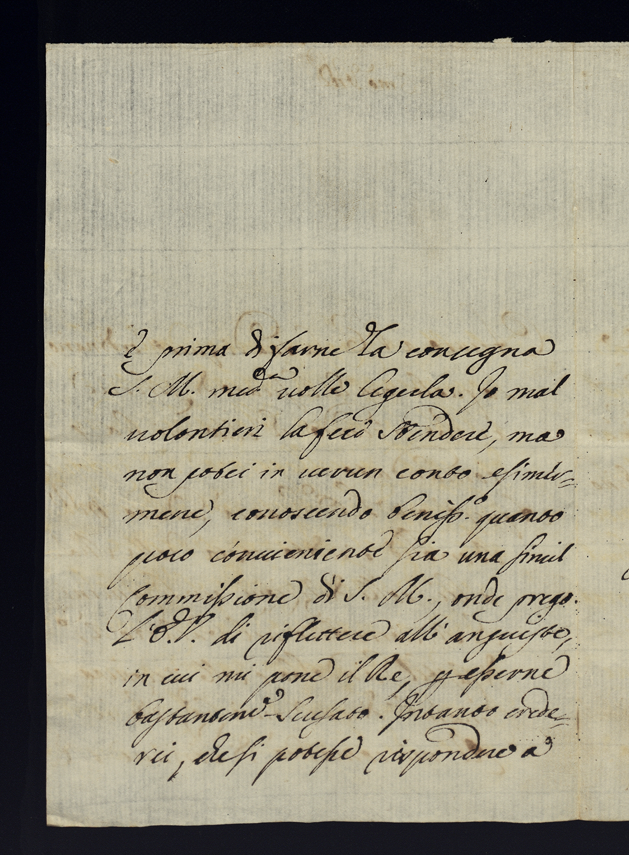 e prima di farne la consegna
S. M. med.ª volle legerla. Io mal
volontieri la feci stendere, ma
non potei in verun conto esimer=
mene, conoscendo beniss.º quanto
poco conveniente sia una simil
Commissione di S. M., onde prego
V. di riflettere all' angustie,
in cui mi pone il Re, p esserne
bastantem.e scusato. Intanto crede=
rei, che si potesse rispondere a